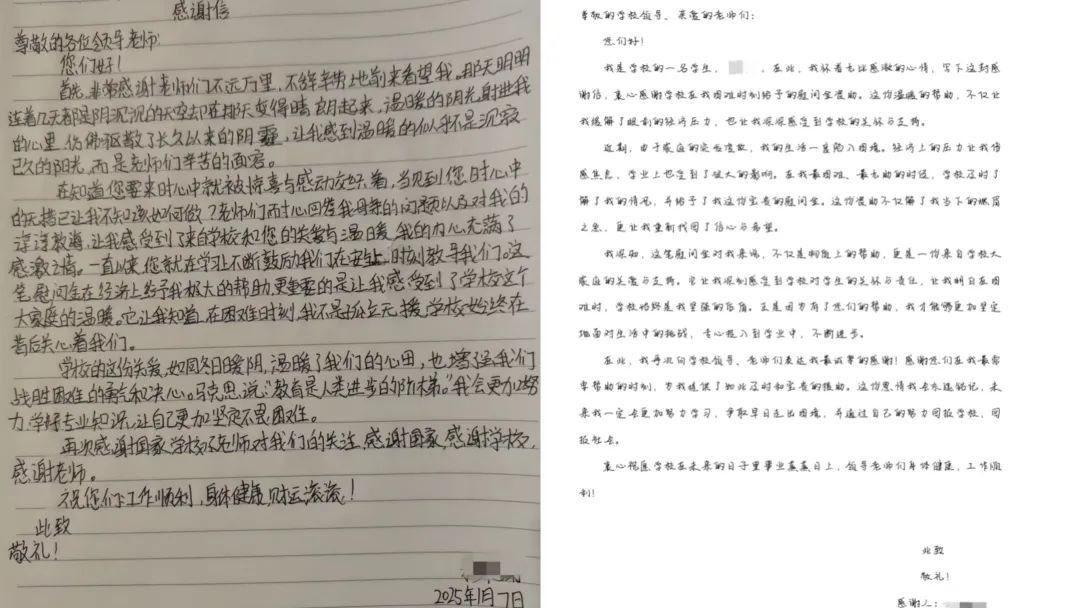 感谢信
尊敬的各位领导老师:
您们好!
首先,非常感谢老师们不远万里,不辞辛劳地前来看望我。那天明明
连着几天都是阴沉沉的天空却在那天变得晴朗起来,温暖的阳光射进我
的心里,仿佛驱散了长久以来的阴霾,让我感到温暖的似乎不是沉寂
已久的阳光,而是老师们辛苦的面容。
在知道您要来时心中就被惊喜与感动交织着,当见到您时心中
的无措已让我不知该如何做?老师们耐心回答我母亲的问题以及对我的
谆谆教诲,让我感受到了来自学校和您的关爱与温暖,我的内心充满了
感激之情。一直以来,您就在学习上不断鼓励我们,在安全上时刻教导我们。这
笔慰问金在经济上给予我极大的帮助,更重要的是让我感受到了学校这个
大家庭的温暖。它让我知道,在困难时刻,我不是孤立无援,学校始终在
背后关心着我们。
学校的这份关爱,如同冬日暖阳,温暖了我们的心田,也增强我们
战胜困难的勇气和决心。马克思说:“教育是人类进步的阶梯。”我会更加努
力,学好专业知识,让自己更加坚定不畏困难。
再次感谢国家,学校及老师对我们的关注,感谢国家,感谢学校,
感谢老师。
祝您们:工作顺利,身体健康,财运滚滚!
此致
敬礼!
2025年1月7日
尊敬的学校领导、亲爱的老师们:
您们好!
我是学校的一名学生,,在此,我怀着无比感激的心情,写下这封感
谢信,衷心感谢学校在我困难时刻给予的慰问金援助。这份温暖的帮助,不仅让
我缓解了眼前的经济压力,也让我深深感受到学校的关怀与支持。
近期,由于家庭的突发变故,我的生活一度陷入困境。经济上的压力让我倍
感焦虑,学业上也受到了极大的影响。在我最困难、最无助的时候,学校及时了
解了我的情况,并给予了我这份宝贵的慰问金。这份援助不仅解了我当下的燃眉
之急,更让我重新找回了信心与希望。
我深知,这笔慰问金对我来说,不仅是物质上的帮助,更是一份来自学校大
家庭的关爱与支持。它让我深刻感受到学校对学生的关怀与责任,让我明白在困
难时,学校始终是我坚强的后盾。正是因为有了您们的帮助,我才能够更加坚定
地面对生活中的挑战,专心投入到学业中,不断进步。
在此,我再次向学校领导、老师们表达我最诚挚的感谢!感谢您们在我最需
要帮助的时刻,为我提供了如此及时和宝贵的援助。这份恩情我会永远铭记,未
来我一定会更加努力学习,争取早日走出困境,并通过自己的努力回报学校,回
报社会。
衷心祝愿学校在未来的日子里事业蒸蒸日上,领导老师们身体健康,工作顺
利!
此致
敬礼!
感谢人: